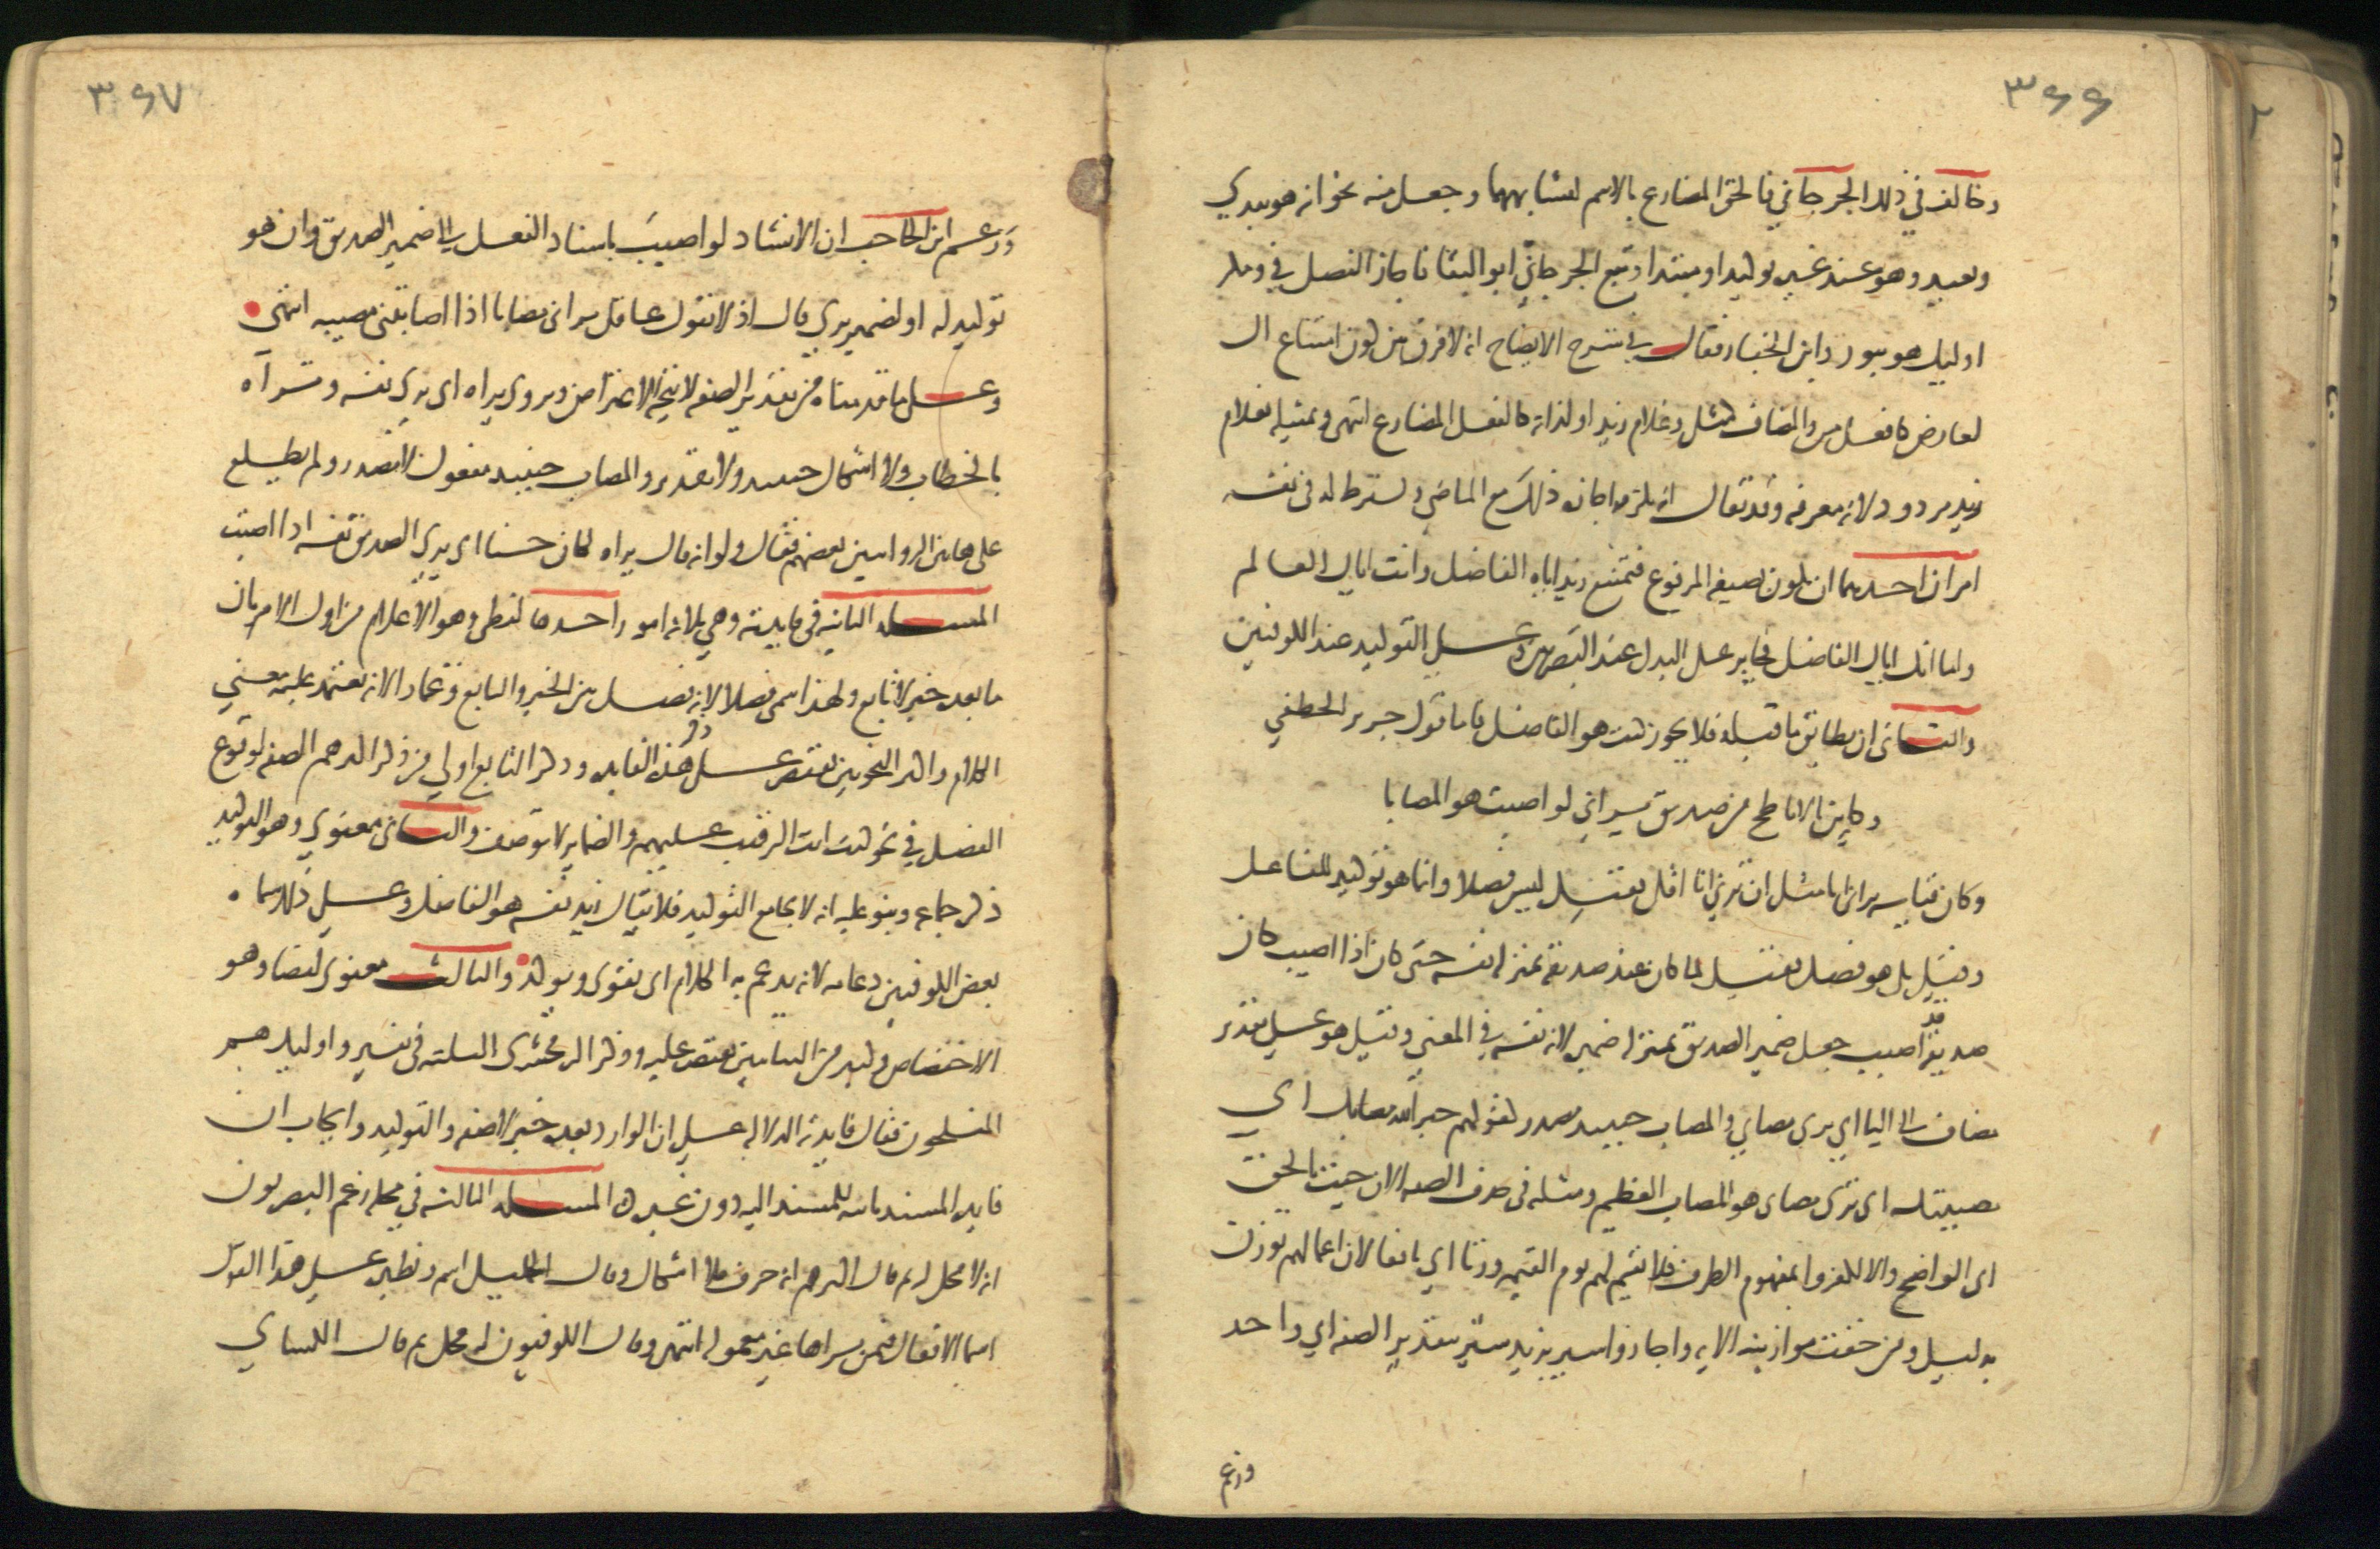 ٣٤٤
وخالف في ذلك الجرجاني فالحق المضارع بالاسم لتشابههما وجعل منه نحو انه هو يبدي
ويعيد وهو عند غيره توكيد او مبتدا وتبع الجرجاني ابو البقا فاجاز الفصل في ومكر
اوليك هو يبور وابن الخباز فقال في شرح الايضاح انه لا فرق بين كون امتناع ال
لعارض كافعل من والمضاف كمثلك وغلام زيد او لذاته كالفعل المضارع انتهى وتمثيله بغلام
زيد مردود لانه معرفه وقد يقال انه يلزمه اجازه ذلك مع الماضي ويشترط له في نفسه
امران احدهما ان يكون بصيغه المرفوع فيمتنع زيد اياه الفاضل وانت اياك العالم
واما انك اياك الفاضل فجايز على البدل عند البصريين وعلى التوكيد عند الكوفيين
والثاني ان يطابق ما قبله فلا يجوز كنت هو الفاضل فاما قول جرير الخطفي
وكاين بالاباطح من صديق يراني لو اصبت هو المصابا
وكان قياسه يراني انا مثل ان ترني انا اقل فقيل ليس فصلا وانما هو توكيد للفاعل
وقيل بل هو فصل فقيل لما كان عند صديقه بمنزله نفسه حتى كان اذا اصيب كان
صديقه قد اصيب جعل ضمير الصديق بمنزله ضميره لانه نفسه في المعنى وقيل هو على تقدير
مضاف الى اليا اي يرى مصابي والمصاب حينيذ مصدر كقولهم جبر الله مصابك اي
مصيبتك اي يرى مصابي هو المصاب العظيم ومثله في حذف الصفه الان جيت بالحق
اي الواضح والا لكفروا بمفهوم الظرف فلا نقيم لهم يوم القيمه وزنا اي نافعا لان اعمالهم توزن
بدليل ومن خفت موازينه الايه واجازوا سير بزيد سير بتقدير الصفه اي واحد
وزعم
٣٤٧
وزعم ابن الحاجب ان الانشاد لو اصيب باسناد الفعل الى ضمير الصديق وان هو
توكيد له او لضمير يرى قال اذ لا يقول عاقل يراني مصابا اذا اصابتني مصيبه انتهى
وعلى ما قدمناه من تقدير الصفه لا يتجه الاعتراض ويروى يراه اي يرى نفسه وتراه
بالخطاب ولا اشكال حينيذ ولا تقدير والمصاب حينيذ مفعول لا مصدر ولم يطلع
على هاتين الروايتين بعضهم فقال ولو انه قال يراه لكان حسنا اي يرى الصديق نفسه اذا اصبت
المسله الثانيه في فايدته وهي ثلاثه امور احدها لفظي وهو الاعلام من اول الامر بان
ما بعده خبر لا تابع ولهذا سمي فصلا لانه فصل بين الخبر والتابع وعمادا لانه يعتمد عليه معنى
الكلام واكثر النحويين يقتصر على ذكر هذه الفايده وذكر التابع اولى من ذكر اكثرهم الصفه لوقوع
الفصل في نحو كنت انت الرقيب عليهم والضماير لا توصف والثاني معنوي وهو التوكيد
ذكره جماعه وبنوا عليه انه لا يجامع التوكيد فلا يقال زيد نفسه هو الفاضل وعلى ذلك سماه
بعض الكوفيين دعامه لانه يدعم به الكلام اي يقوى ويوكد والثالث معنوي ايضا وهو
الاختصاص وكثير من البيانيين يقتصر عليه وذكر الزمخشري الثلثه في تفسير واوليك هم
المفلحون فقال فايدته الدلاله على ان الوارد بعده خبر لا صفه والتوكيد وايجاب ان
فايده المسند ثابته للمسند اليه دون غيره المسله الثالثه في محله زعم البصريون
انه لا محل له ثم قال اكثرهم انه حرف فلا اشكال وقال الخليل اسم ونظيره على هذا القول
اسما الافعال فيمن يراها غير معموله انتهى وقال الكوفيون له محل ثم قال الكساي